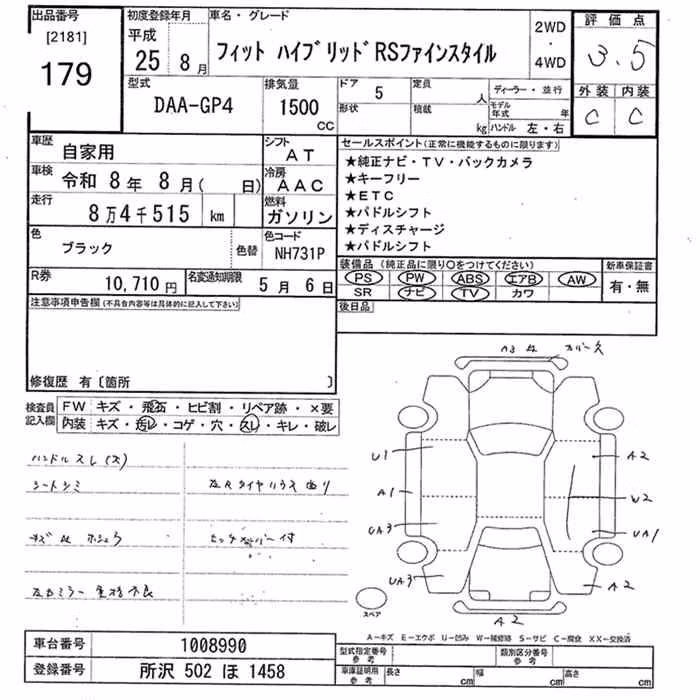 出品番号
[2181]
179
初度登録年月
平成
25 8月
車名・グレード
フィット ハイブリッドRSファインスタイル
2WD
・
4WD
評価点
3.5
外装 内装
C C
型式
DAA-GP4
排気量
1500
CC
ドア 5
形状
定員 人
積載 kg
ディーラー・並行
モデル年式 年
ハンドル 左・右
車歴 自家用
シフト AT
車検 令和 8年 8月( 日)
冷房 AAC
走行 8万4千515 km
燃料 ガソリン
色 ブラック 色替
色コード NH731P
R券 10,710円
名変通知期限 5月 6日
セールスポイント(正常に機能するものに限ります)
★純正ナビ・TV・バックカメラ
★キーフリー
★ETC
★パドルシフト
★ディスチャージ
★パドルシフト
装備品(純正品に限り○をつけてください)
PS PW ABS エアB AW
SR ナビ TV カワ
新車保証書
有・無
後日品
注意事項申告欄(不具合内容等は具体的に記入して下さい)
修復歴 有〔箇所 〕
検査員記入欄
FW キズ・飛石・ヒビ割・リペア跡・×要
内装 キズ・汚レ・コゲ・穴・スレ・キレ・破レ
ハンドルスレ(大)
シートシミ
左Rタイヤハウス曲り
キズ
ピッチ 付
左ドミラー 不良
A3
カバー欠
U1
A2
A1
W2
UA3
UA1
UA3
A2
A2
スペア
A-キズ E-エクボ U-凹み W-補修跡 S-サビ C-腐食 XX-交換済
車台番号 1008990
登録番号 所沢 502 ほ 1458
型式指定番号 参考
類別区分番号 参考
車庫証明用 参考 長さ cm 幅 cm 高さ cm